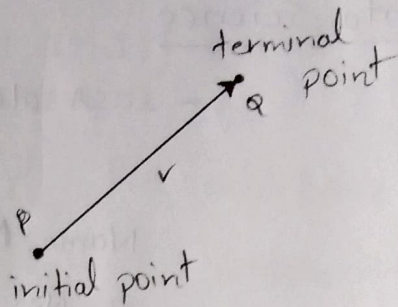 terminal
point
Q
v
P
initial point